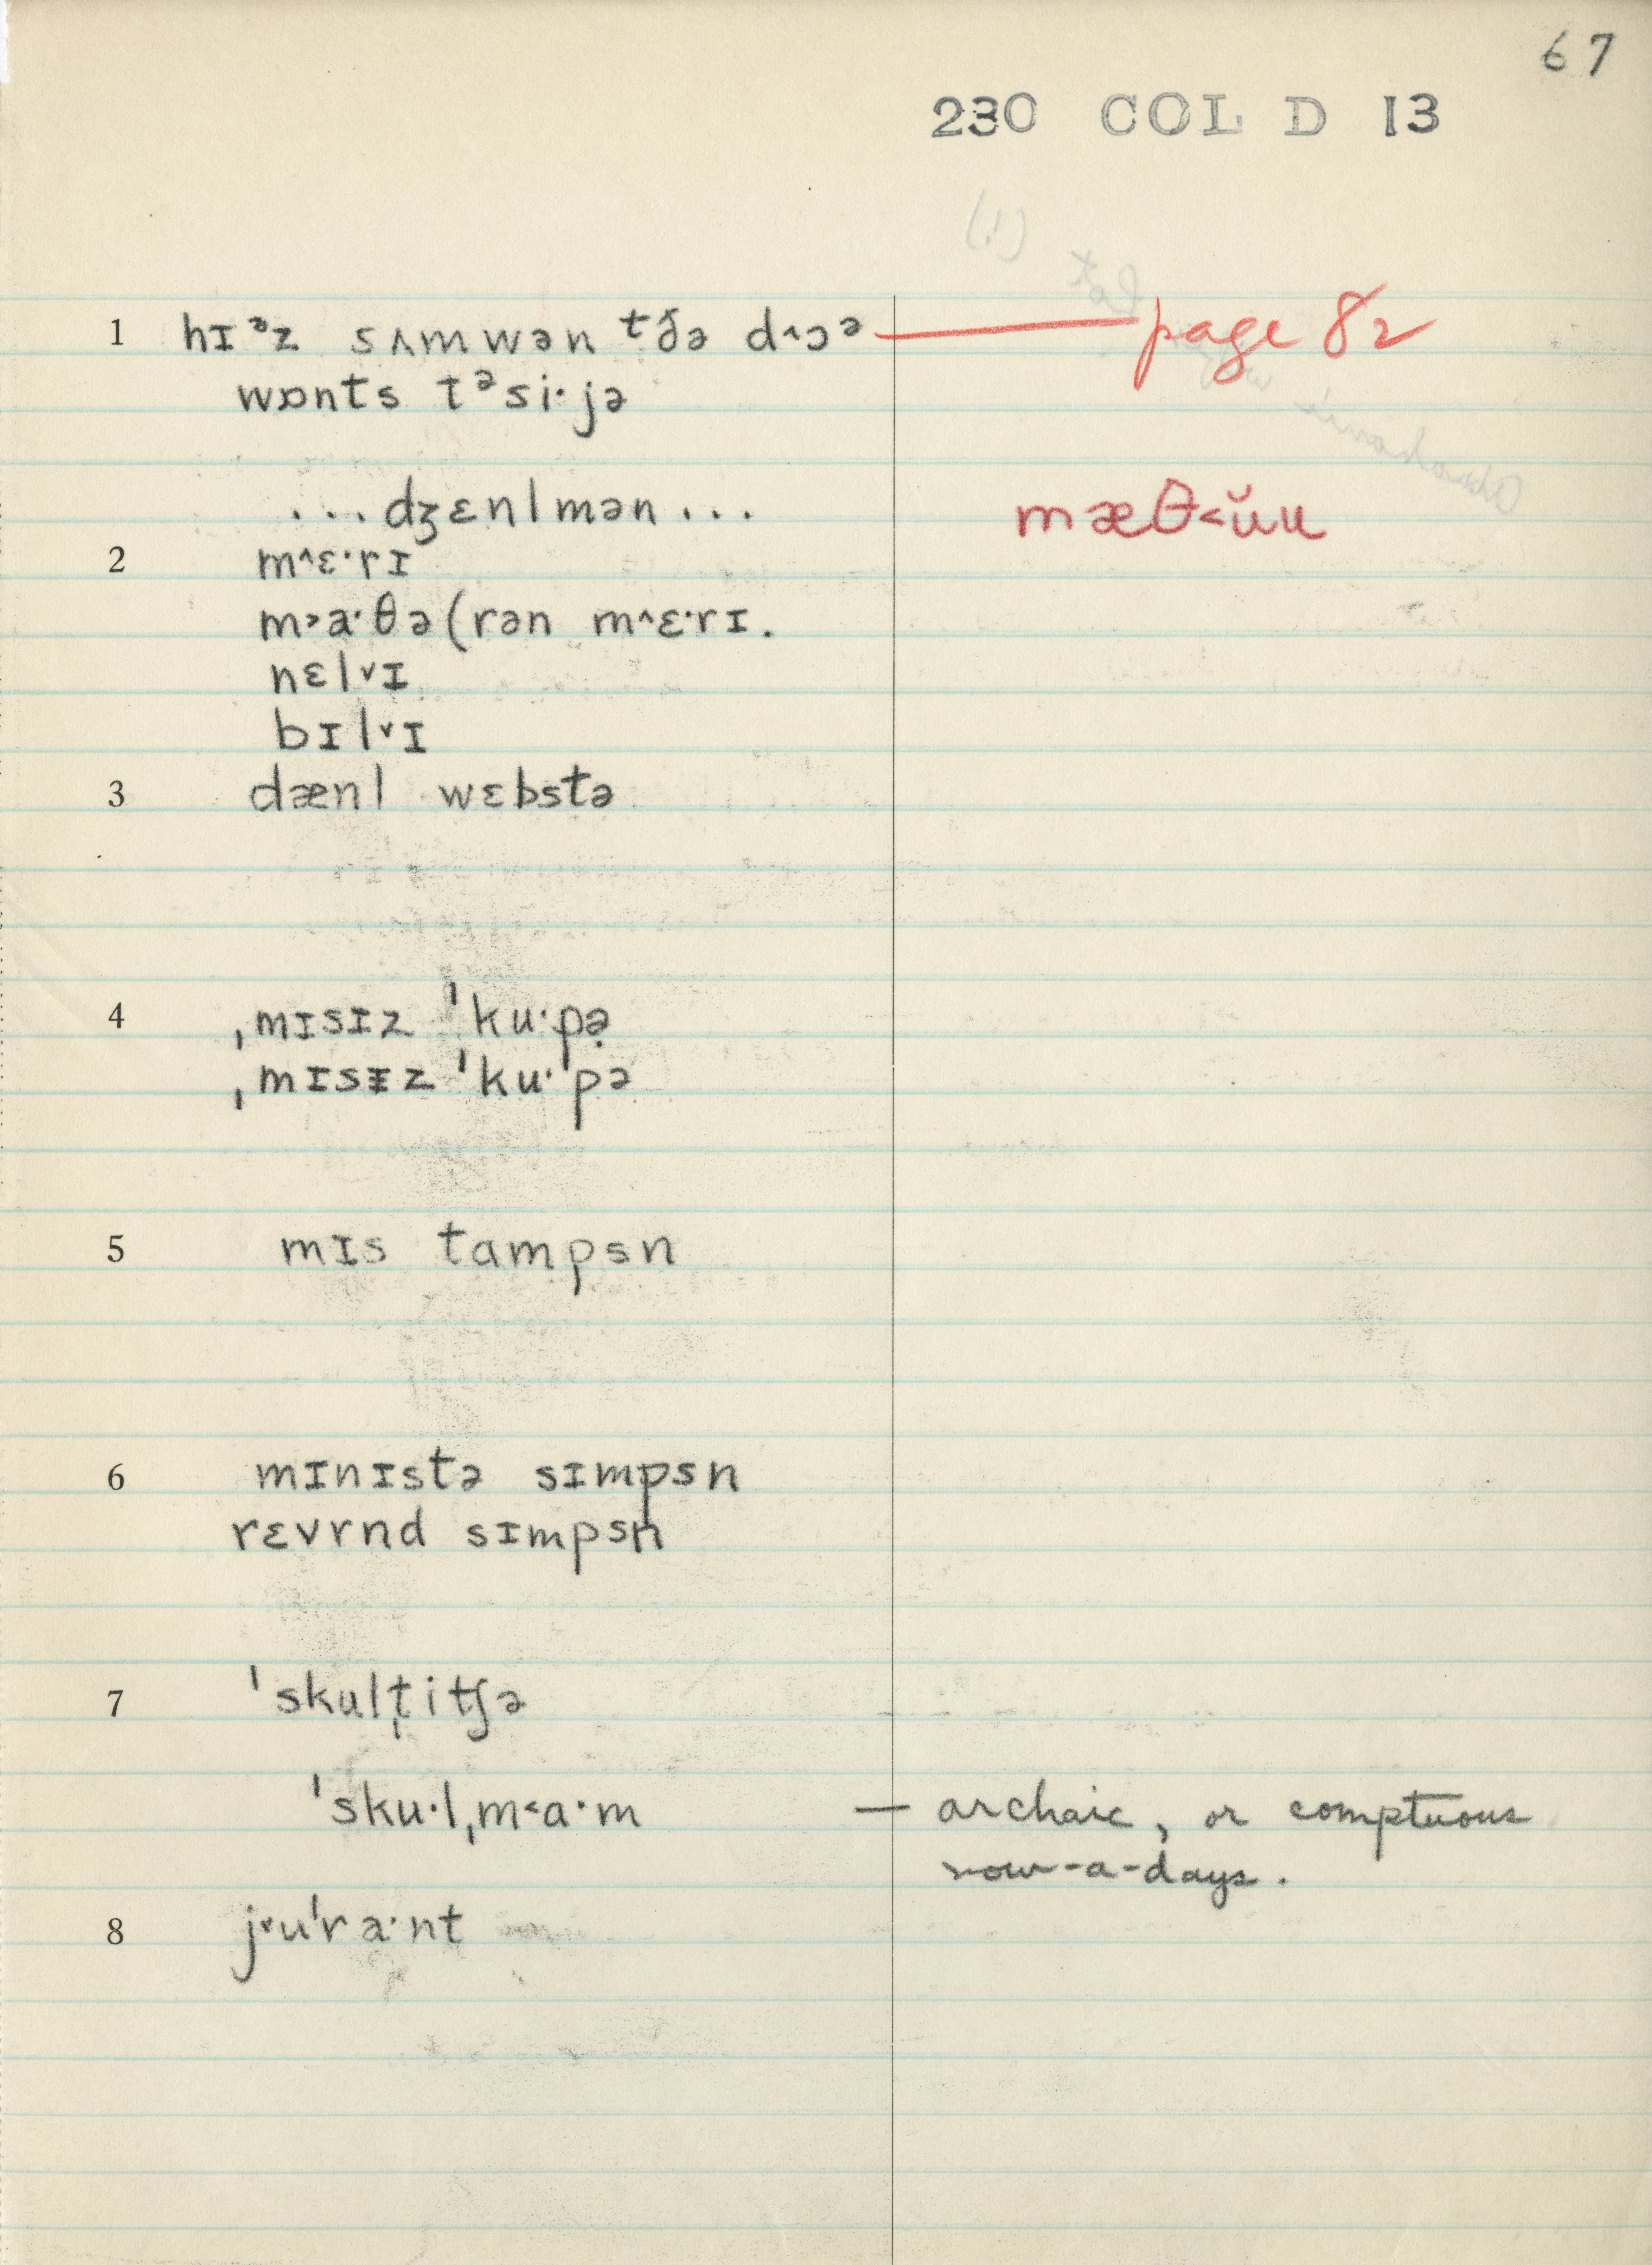 67
230 COL D 13
1 hɪᵊz sʌmwən ᵗðə d˄ɔə — page 82
wɒnts tᵊsi·jə
...dʒɛnlmən... mæθ˂ŭu
2 m˄ɛ·rɪ
m˃a·θə(rən m˄ɛ·rɪ.
nɛl˅ɪ
bɪl˅ɪ
3 dænl wɛbstə
4 ˌmɪsɪz ˈku·pə̣
ˌmɪsᵻz ˈku·ˈpə
5 mɪs tampsn
6 mɪnɪstə sɪmpsn
rɛvrnd sɪmpsn
7 ˈskult̩itʃə
ˈsku·lˌm˂a·m — archaic, or comptuous
now-a-days.
8 j˅uˈra·nt